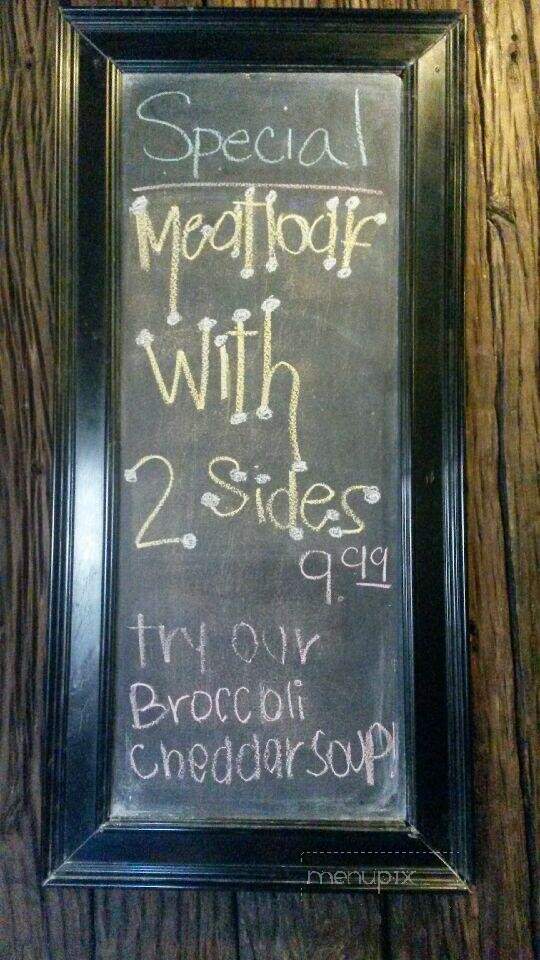 Special
Meatloaf
With
2 Sides
9.99
try our
Broccoli
cheddar soup!
menupix